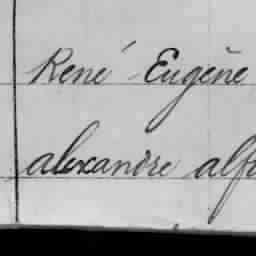 René Eugène
alexandre alf